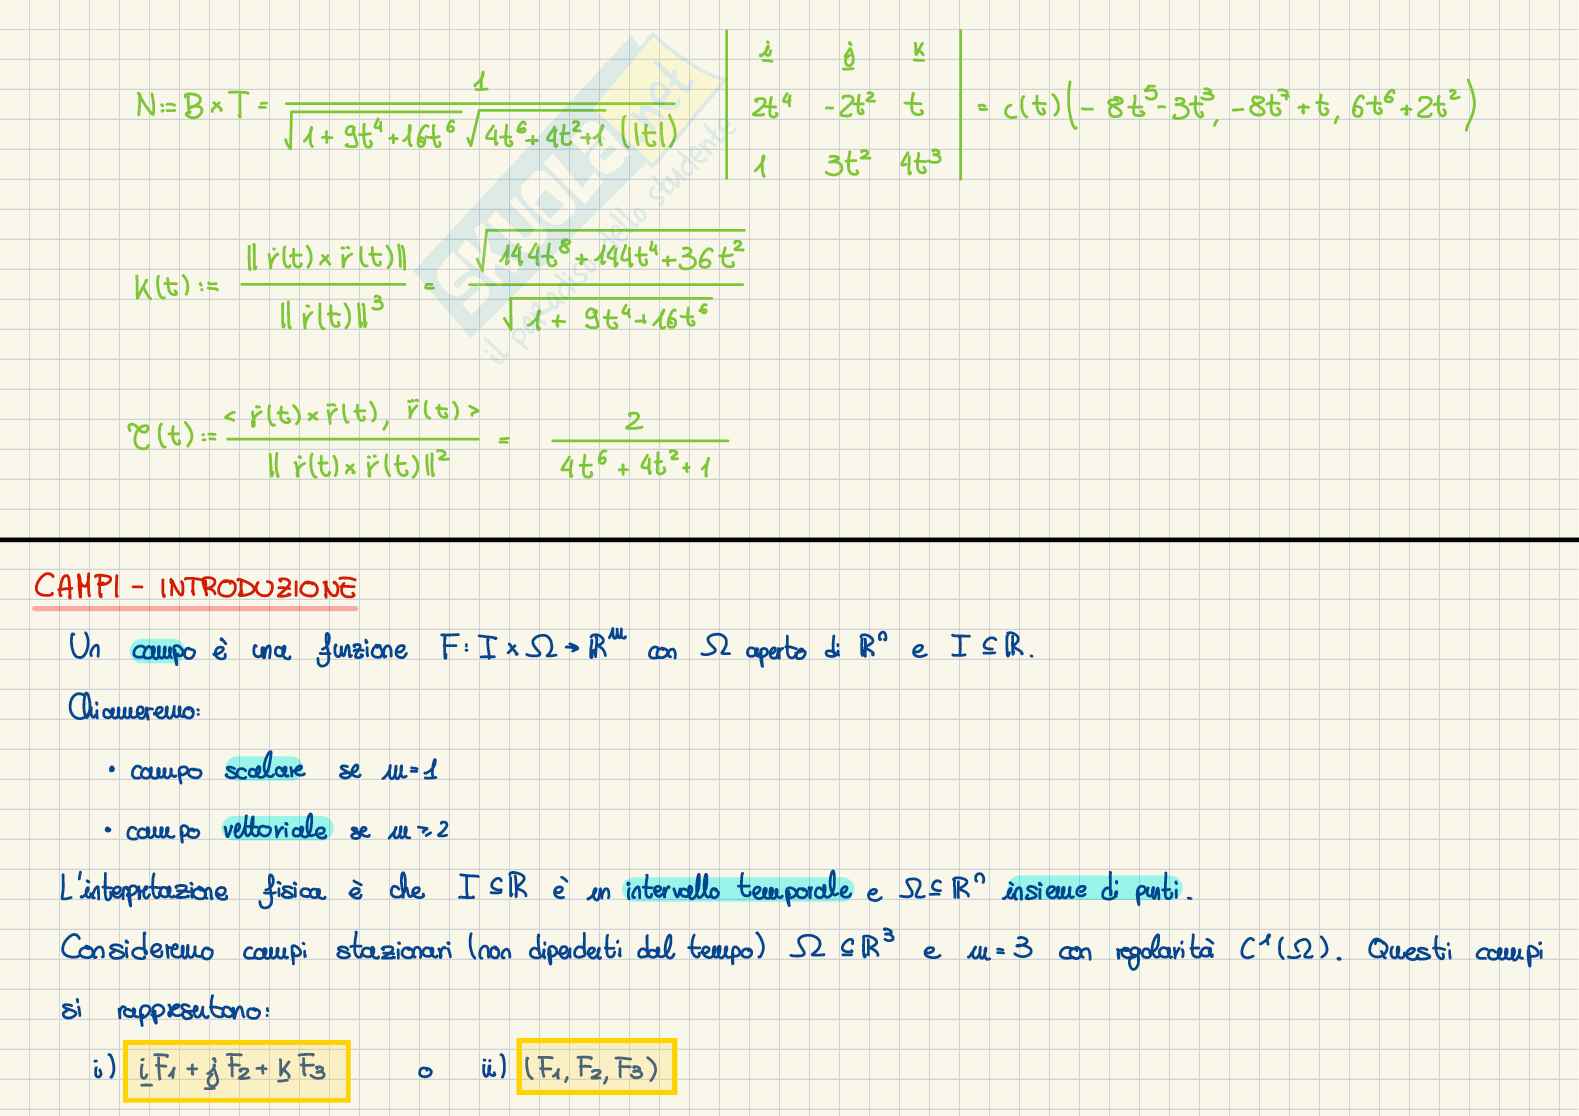 N:= B × T = 1 / (√(1 + 9t⁴ + 16t⁶) √(4t⁶ + 4t² + 1) (|t|)) | i j k ; 2t⁴ -2t² t ; 1 3t² 4t³ | = c(t) (- 8t⁵ - 3t³, - 8t⁷ + t, 6t⁶ + 2t²)
K(t) := ‖ṙ(t) × r̈(t)‖ / ‖ṙ(t)‖³ = √(144t⁸ + 144t⁴ + 36t²) / √(1 + 9t⁴ + 16t⁶)
τ(t) := < ṙ(t) × r̈(t), r⃛(t) > / ‖ṙ(t) × r̈(t)‖² = 2 / (4t⁶ + 4t² + 1)
SKUOLA.net
il paradiso dello studente
CAMPI - INTRODUZIONE
Un campo è una funzione F: I × Ω → ℝᵐ con Ω aperto di ℝⁿ e I ⊆ ℝ.
Chiameremo:
• campo scalare se m = 1
• campo vettoriale se m ≥ 2
L'interpretazione fisica è che I ⊆ ℝ è un intervallo temporale e Ω ⊆ ℝⁿ insieme di punti.
Consideremo campi stazionari (non dipendenti dal tempo) Ω ⊆ ℝ³ e m = 3 con regolarità C¹(Ω). Questi campi
si rappresentano:
i) i F₁ + j F₂ + k F₃ o ii) (F₁, F₂, F₃)